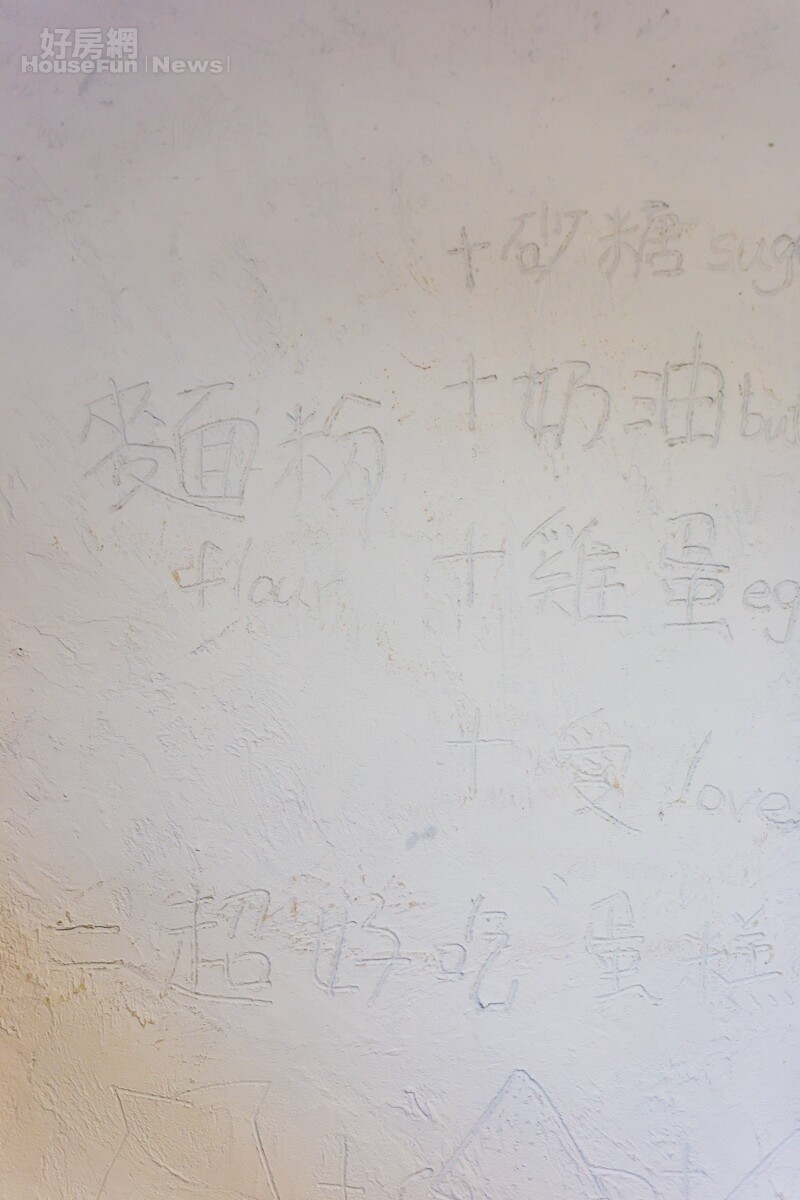 好房網
HOUSEFUN | News |
+砂糖 sug
麵粉 +奶油 but
flour +雞蛋 eg
+愛 love
=超好吃"蛋糕
+ +